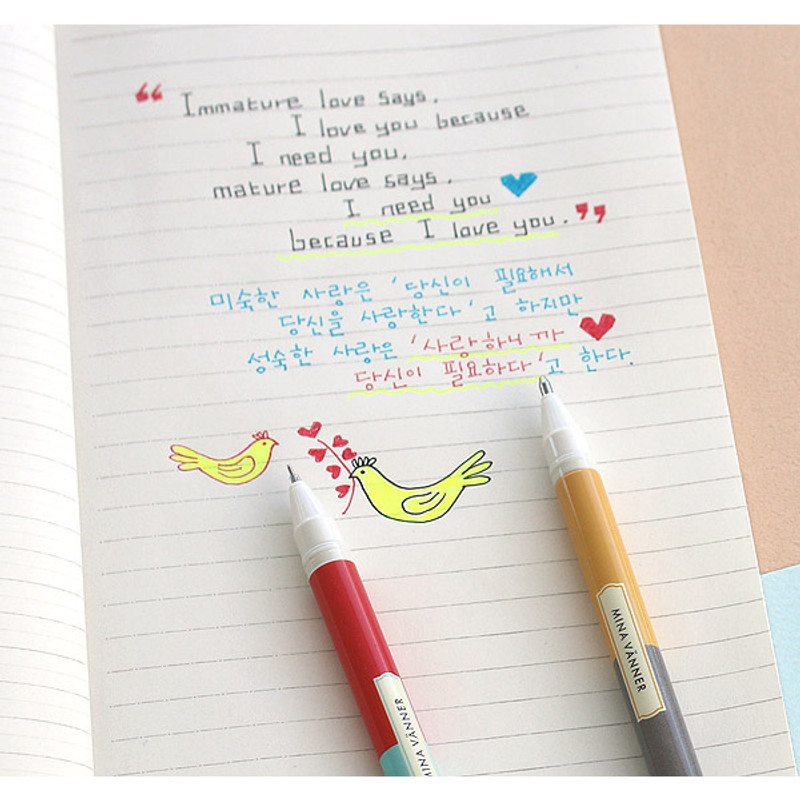 “ Immature love says.
I love you because
I need you,
mature love says.
I need you
because I love you. ”
미숙한 사랑은 '당신이 필요해서
당신을 사랑한다'고 하지만
성숙한 사랑은 '사랑하니까
당신이 필요하다'고 한다.
MINA VÄNNER
MINA VÄNNER